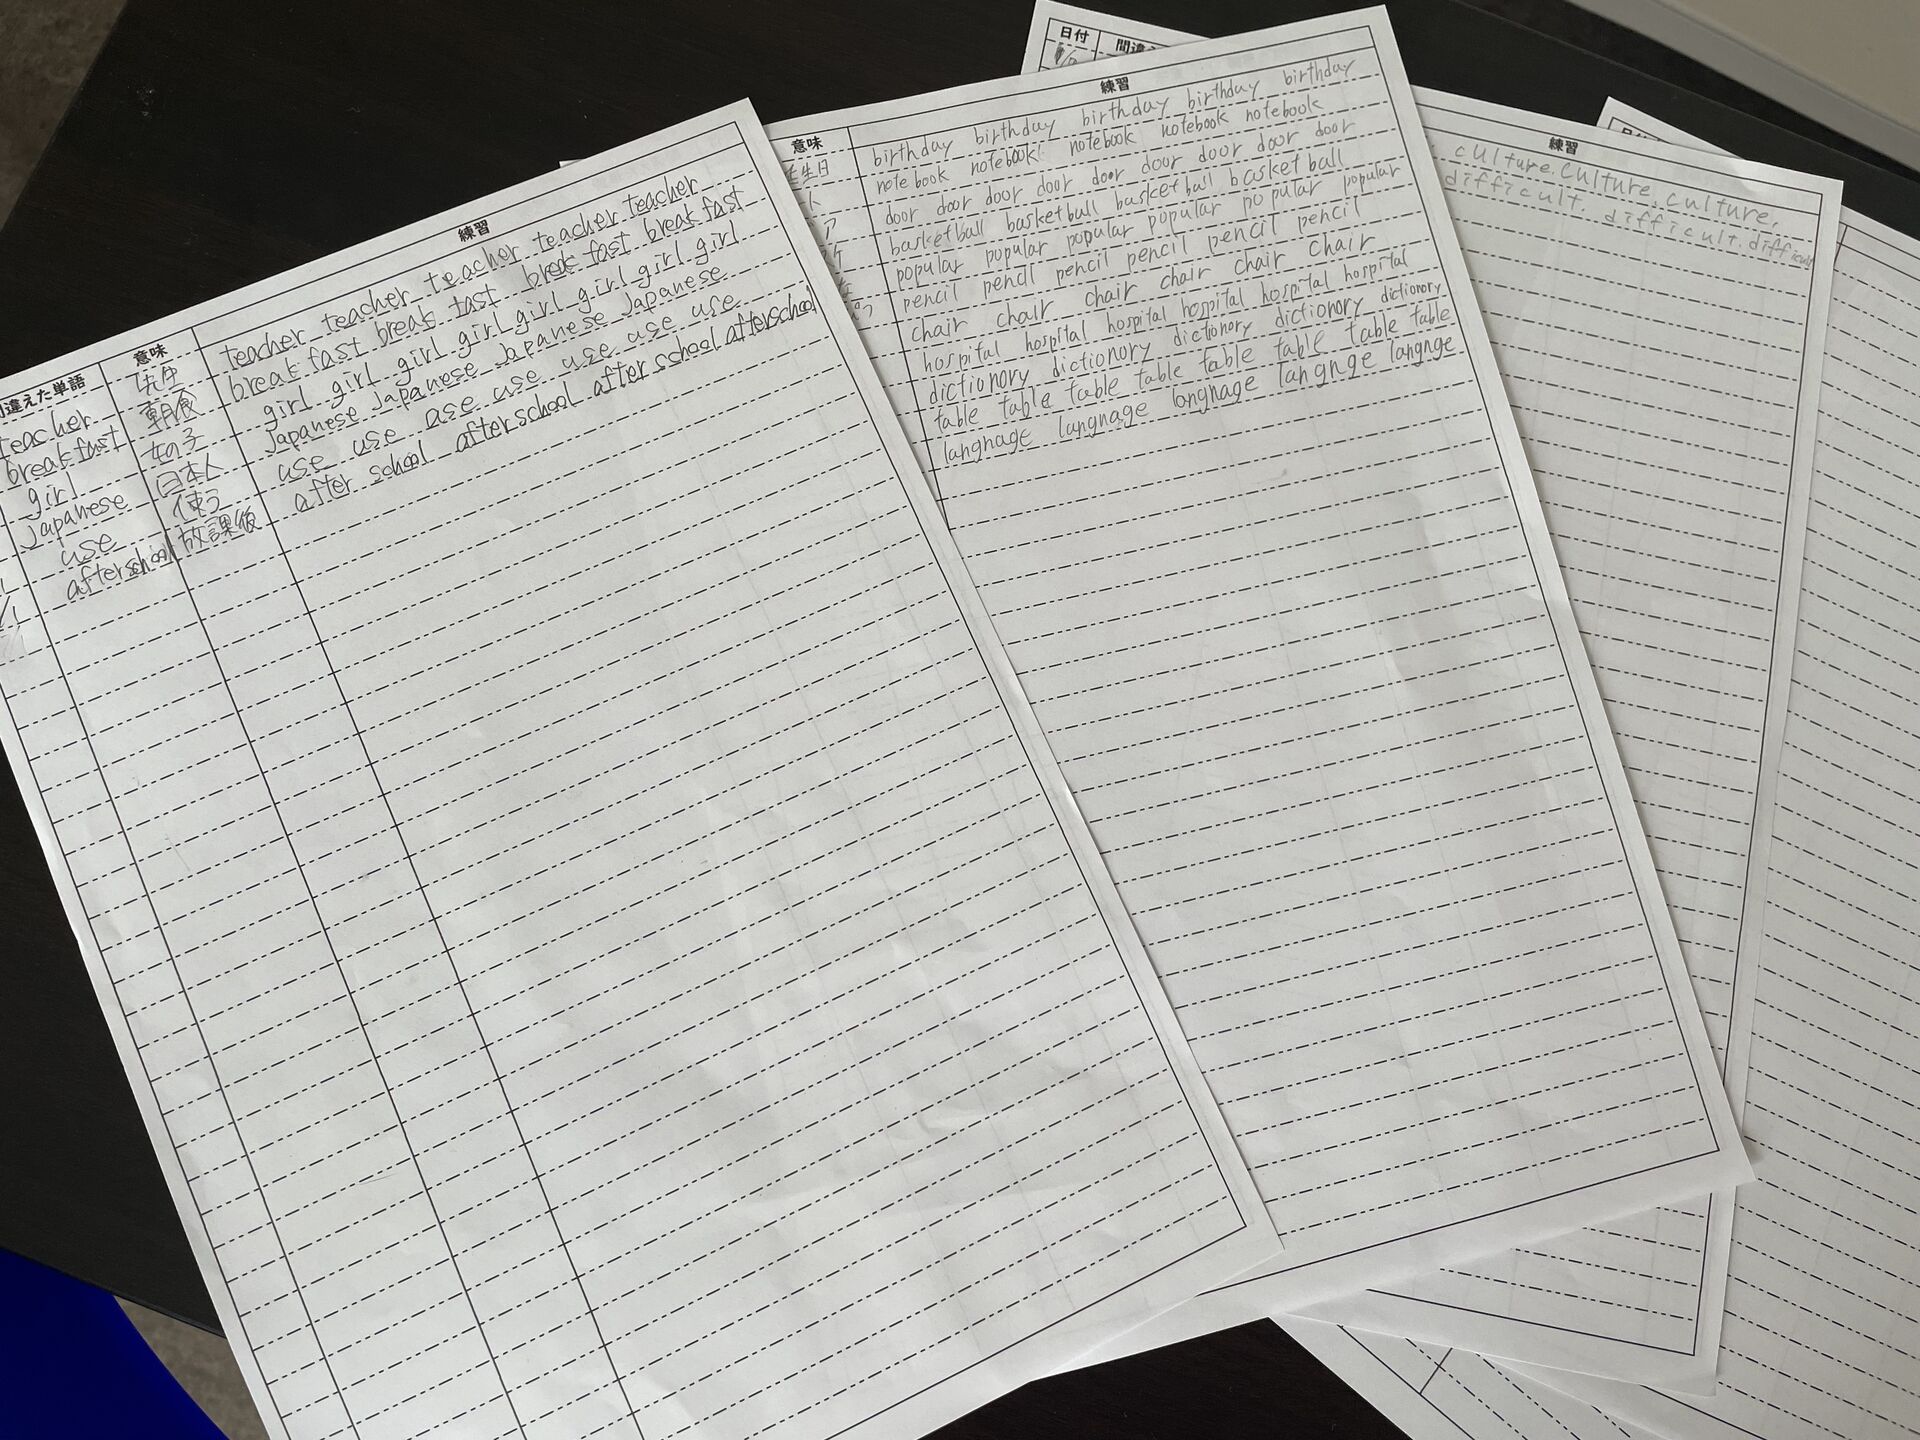 練習
意味
違えた単語
teacher 先生 teacher teacher teacher teacher teacher
breakfast 朝食 break fast break fast break fast break fast
girl 女の子 girl girl girl girl girl girl girl girl
Japanese 日本人 Japanese Japanese Japanese Japanese
use 使う use use use use use use use
afterschool 放課後 after school after school after school afterschool
練習
意味
生日 birthday birthday birthday birthday birthday
ト notebook notebook notebook notebook notebook
ア door door door door door door door door
ケ basketball basketball basketball basketball
popular popular popular popular popular popular
pencil pencil pencil pencil pencil pencil
chair chair chair chair chair chair
hospital hospital hospital hospital hospital hospital
dictionory dictionory dictionory dictionory dictionory
table table table table table table table table
langnage langnage langnage langnage langnge langnge
日付
練習
culture. Culture. culture.
difficult. difficult. difficult